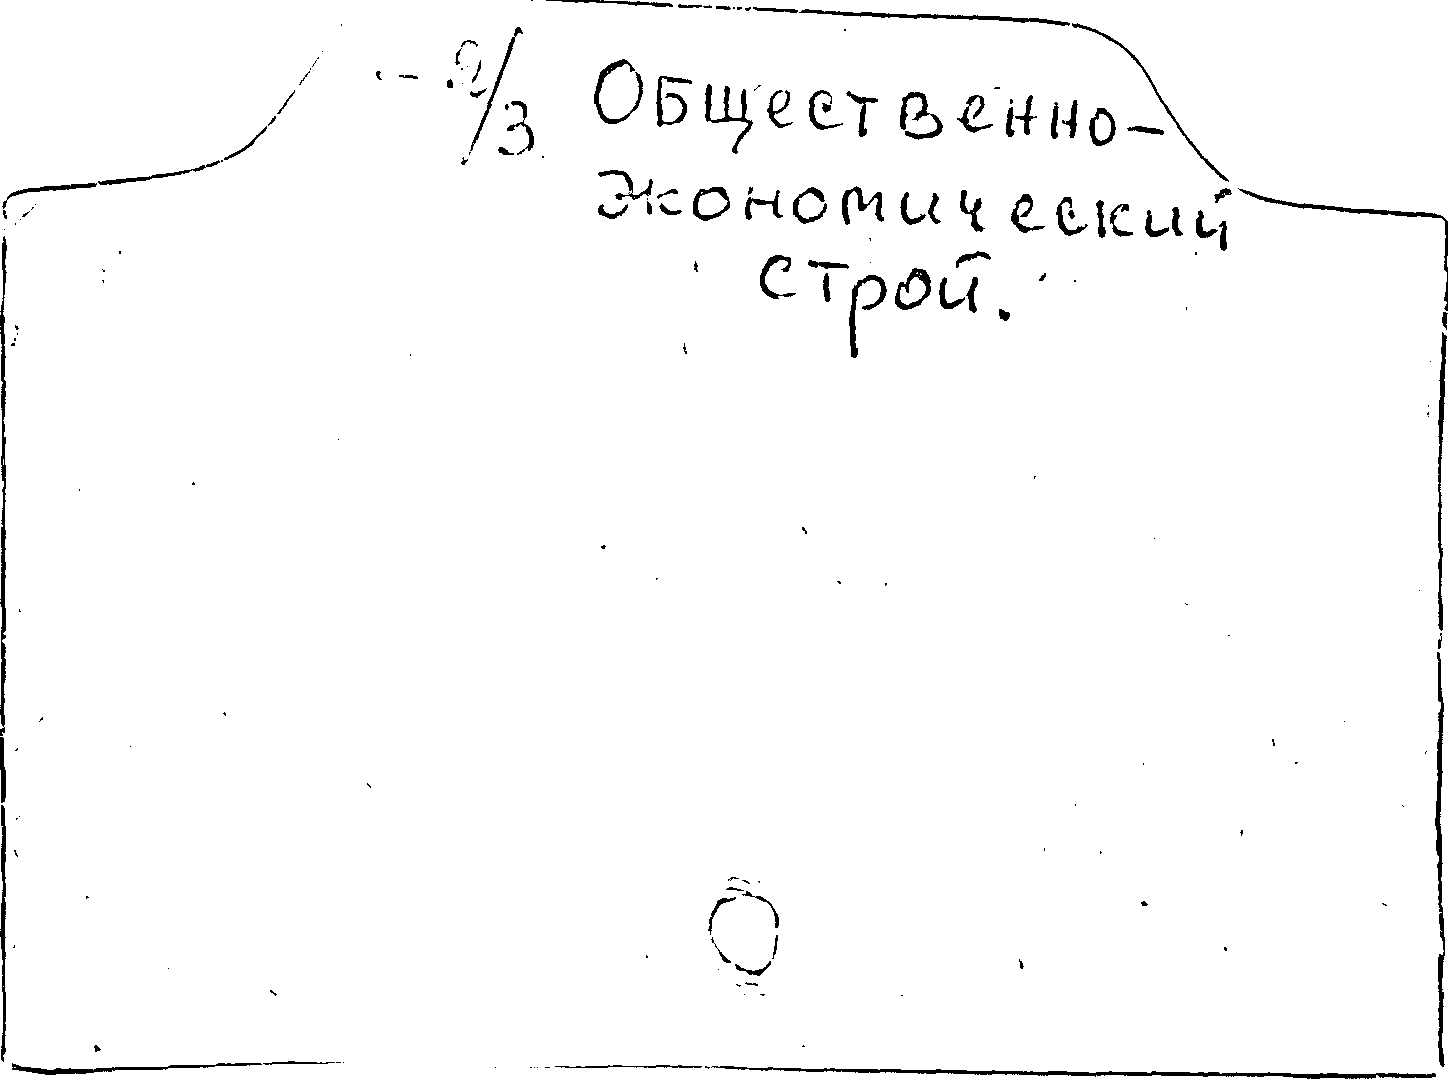 2/3 Общественно-
экономический
строй.